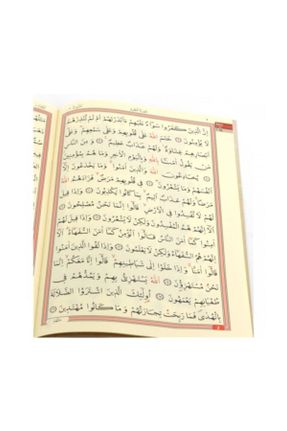 سورة البقرة
إِنَّ الَّذِينَ كَفَرُوا سَوَاءٌ عَلَيْهِمْ ءَأَنْذَرْتَهُمْ أَمْ لَمْ تُنْذِرْهُمْ
لَا يُؤْمِنُونَ خَتَمَ اللهُ عَلَى قُلُوبِهِمْ وَعَلَى سَمْعِهِمْ وَعَلَى
أَبْصَارِهِمْ غِشَاوَةٌ وَلَهُمْ عَذَابٌ عَظِيمٌ وَمِنَ النَّاسِ
مَنْ يَقُولُ آمَنَّا بِاللهِ وَبِالْيَوْمِ الْآخِرِ وَمَا هُمْ بِمُؤْمِنِينَ
يُخَادِعُونَ اللهَ وَالَّذِينَ آمَنُوا وَمَا يَخْدَعُونَ إِلَّا
أَنْفُسَهُمْ وَمَا يَشْعُرُونَ فِي قُلُوبِهِمْ مَرَضٌ فَزَادَهُمُ
اللهُ مَرَضًا وَلَهُمْ عَذَابٌ أَلِيمٌ بِمَا كَانُوا يَكْذِبُونَ وَإِذَا قِيلَ
لَهُمْ لَا تُفْسِدُوا فِي الْأَرْضِ قَالُوا إِنَّمَا نَحْنُ مُصْلِحُونَ
أَلَا إِنَّهُمْ هُمُ الْمُفْسِدُونَ وَلَكِنْ لَا يَشْعُرُونَ وَإِذَا قِيلَ لَهُمْ
آمِنُوا كَمَا آمَنَ النَّاسُ قَالُوا أَنُؤْمِنُ كَمَا آمَنَ السُّفَهَاءُ أَلَا
إِنَّهُمْ هُمُ السُّفَهَاءُ وَلَكِنْ لَا يَعْلَمُونَ وَإِذَا لَقُوا الَّذِينَ آمَنُوا
قَالُوا آمَنَّا وَإِذَا خَلَوْا إِلَى شَيَاطِينِهِمْ قَالُوا إِنَّا مَعَكُمْ إِنَّمَا
نَحْنُ مُسْتَهْزِؤُنَ اللهُ يَسْتَهْزِئُ بِهِمْ وَيَمُدُّهُمْ فِي
طُغْيَانِهِمْ يَعْمَهُونَ أُولَئِكَ الَّذِينَ اشْتَرَوُا الضَّلَالَةَ
بِالْهُدَى فَمَا رَبِحَتْ تِجَارَتُهُمْ وَمَا كَانُوا مُهْتَدِينَ